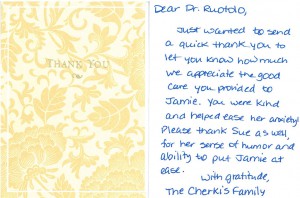 THANK YOU
Dear Dr. Ruotolo,
Just wanted to send
a quick thank you to
let you know how much
we appreciate the good
care you provided to
Jamie. You were kind
and helped ease her anxiety!
Please thank Sue as well,
for her sense of humor and
ability to put Jamie at
ease.
With gratitude,
The Cherkis Family